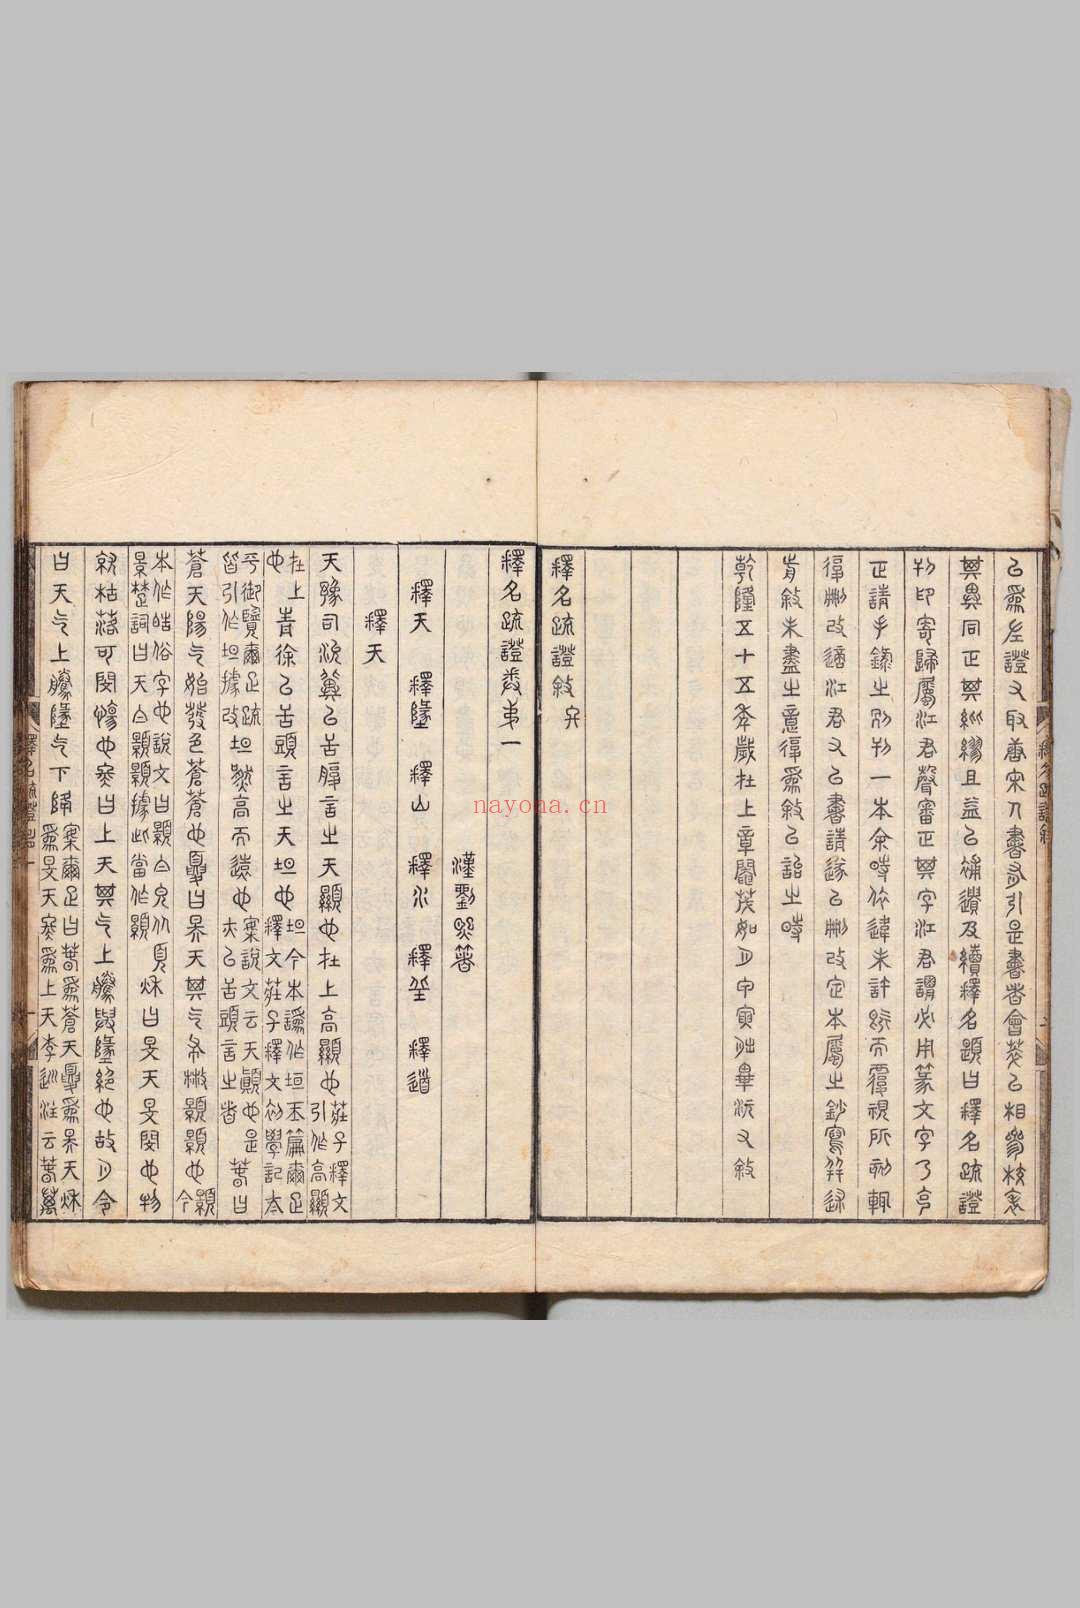 以爲左證又取唐宋人書所引是書者會萃以相參校表
其異同正其紕繆且益以補遺及續釋名題曰釋名疏證
刊印寄歸屬江君聲審正其字江君謂必用篆文字乃克
正請手錄之別刊一本余時依違未許然而覆視所刻輒
復刪改適江君又以書請遂以刪改定本屬之鈔寫并述
前敘未盡之意復爲敘以詒之時
乾隆五十五年歲在上章閹茂如月甲寅朏畢沅又敘
釋名疏證敘
釋名疏證卷弟一
漢劉熙著
釋天 釋地 釋山 釋水 釋丘 釋道
釋天
天豫司沇冀以舌腹言之天顯也在上高顯也莊子釋文引作高顯
在上也青徐以舌頭言之天坦也坦今本譌作垣釋文莊子釋文初學記太
平御覽爾疋疏皆引作坦據改坦然高而遠也案說文云天顛也是亦以舌頭言之者春曰
蒼天陽气始發色蒼蒼也夏曰昊天其气布散顥顥也顥今
本作皓俗字也說文曰顥白皃从頁景楚詞曰天白顥顥據此當作顥秌曰旻天旻閔也物
就枯落可閔傷也冬曰上天其气上騰與地絕也故月令
曰天气上騰地气下降案爾疋曰春爲蒼天夏爲昊天秌爲旻天冬爲上天李巡注云春萬
nayona.cn